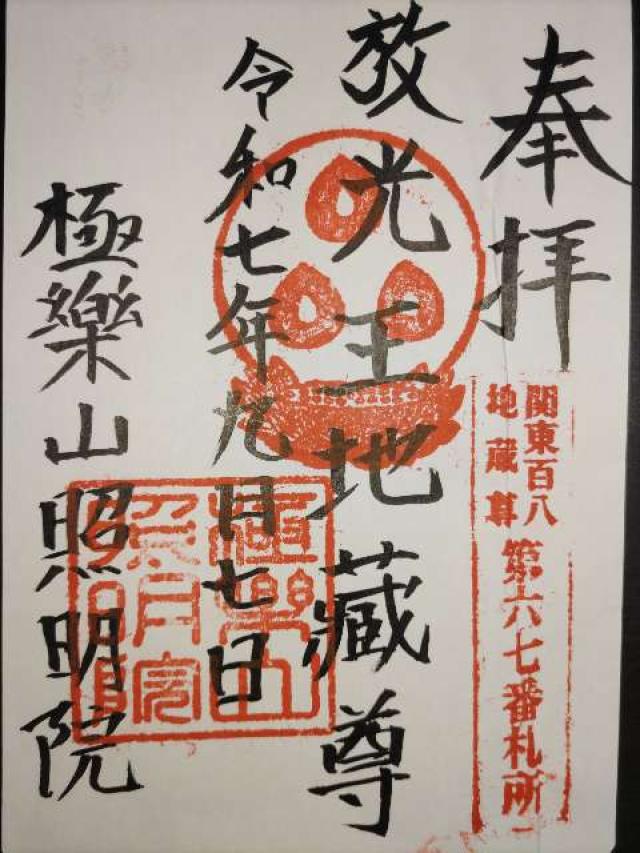 奉拝
関東百八
地蔵尊
第六七番札所
放光王地蔵尊
令和七年九月七日
極樂山照明院
極樂山
照明院